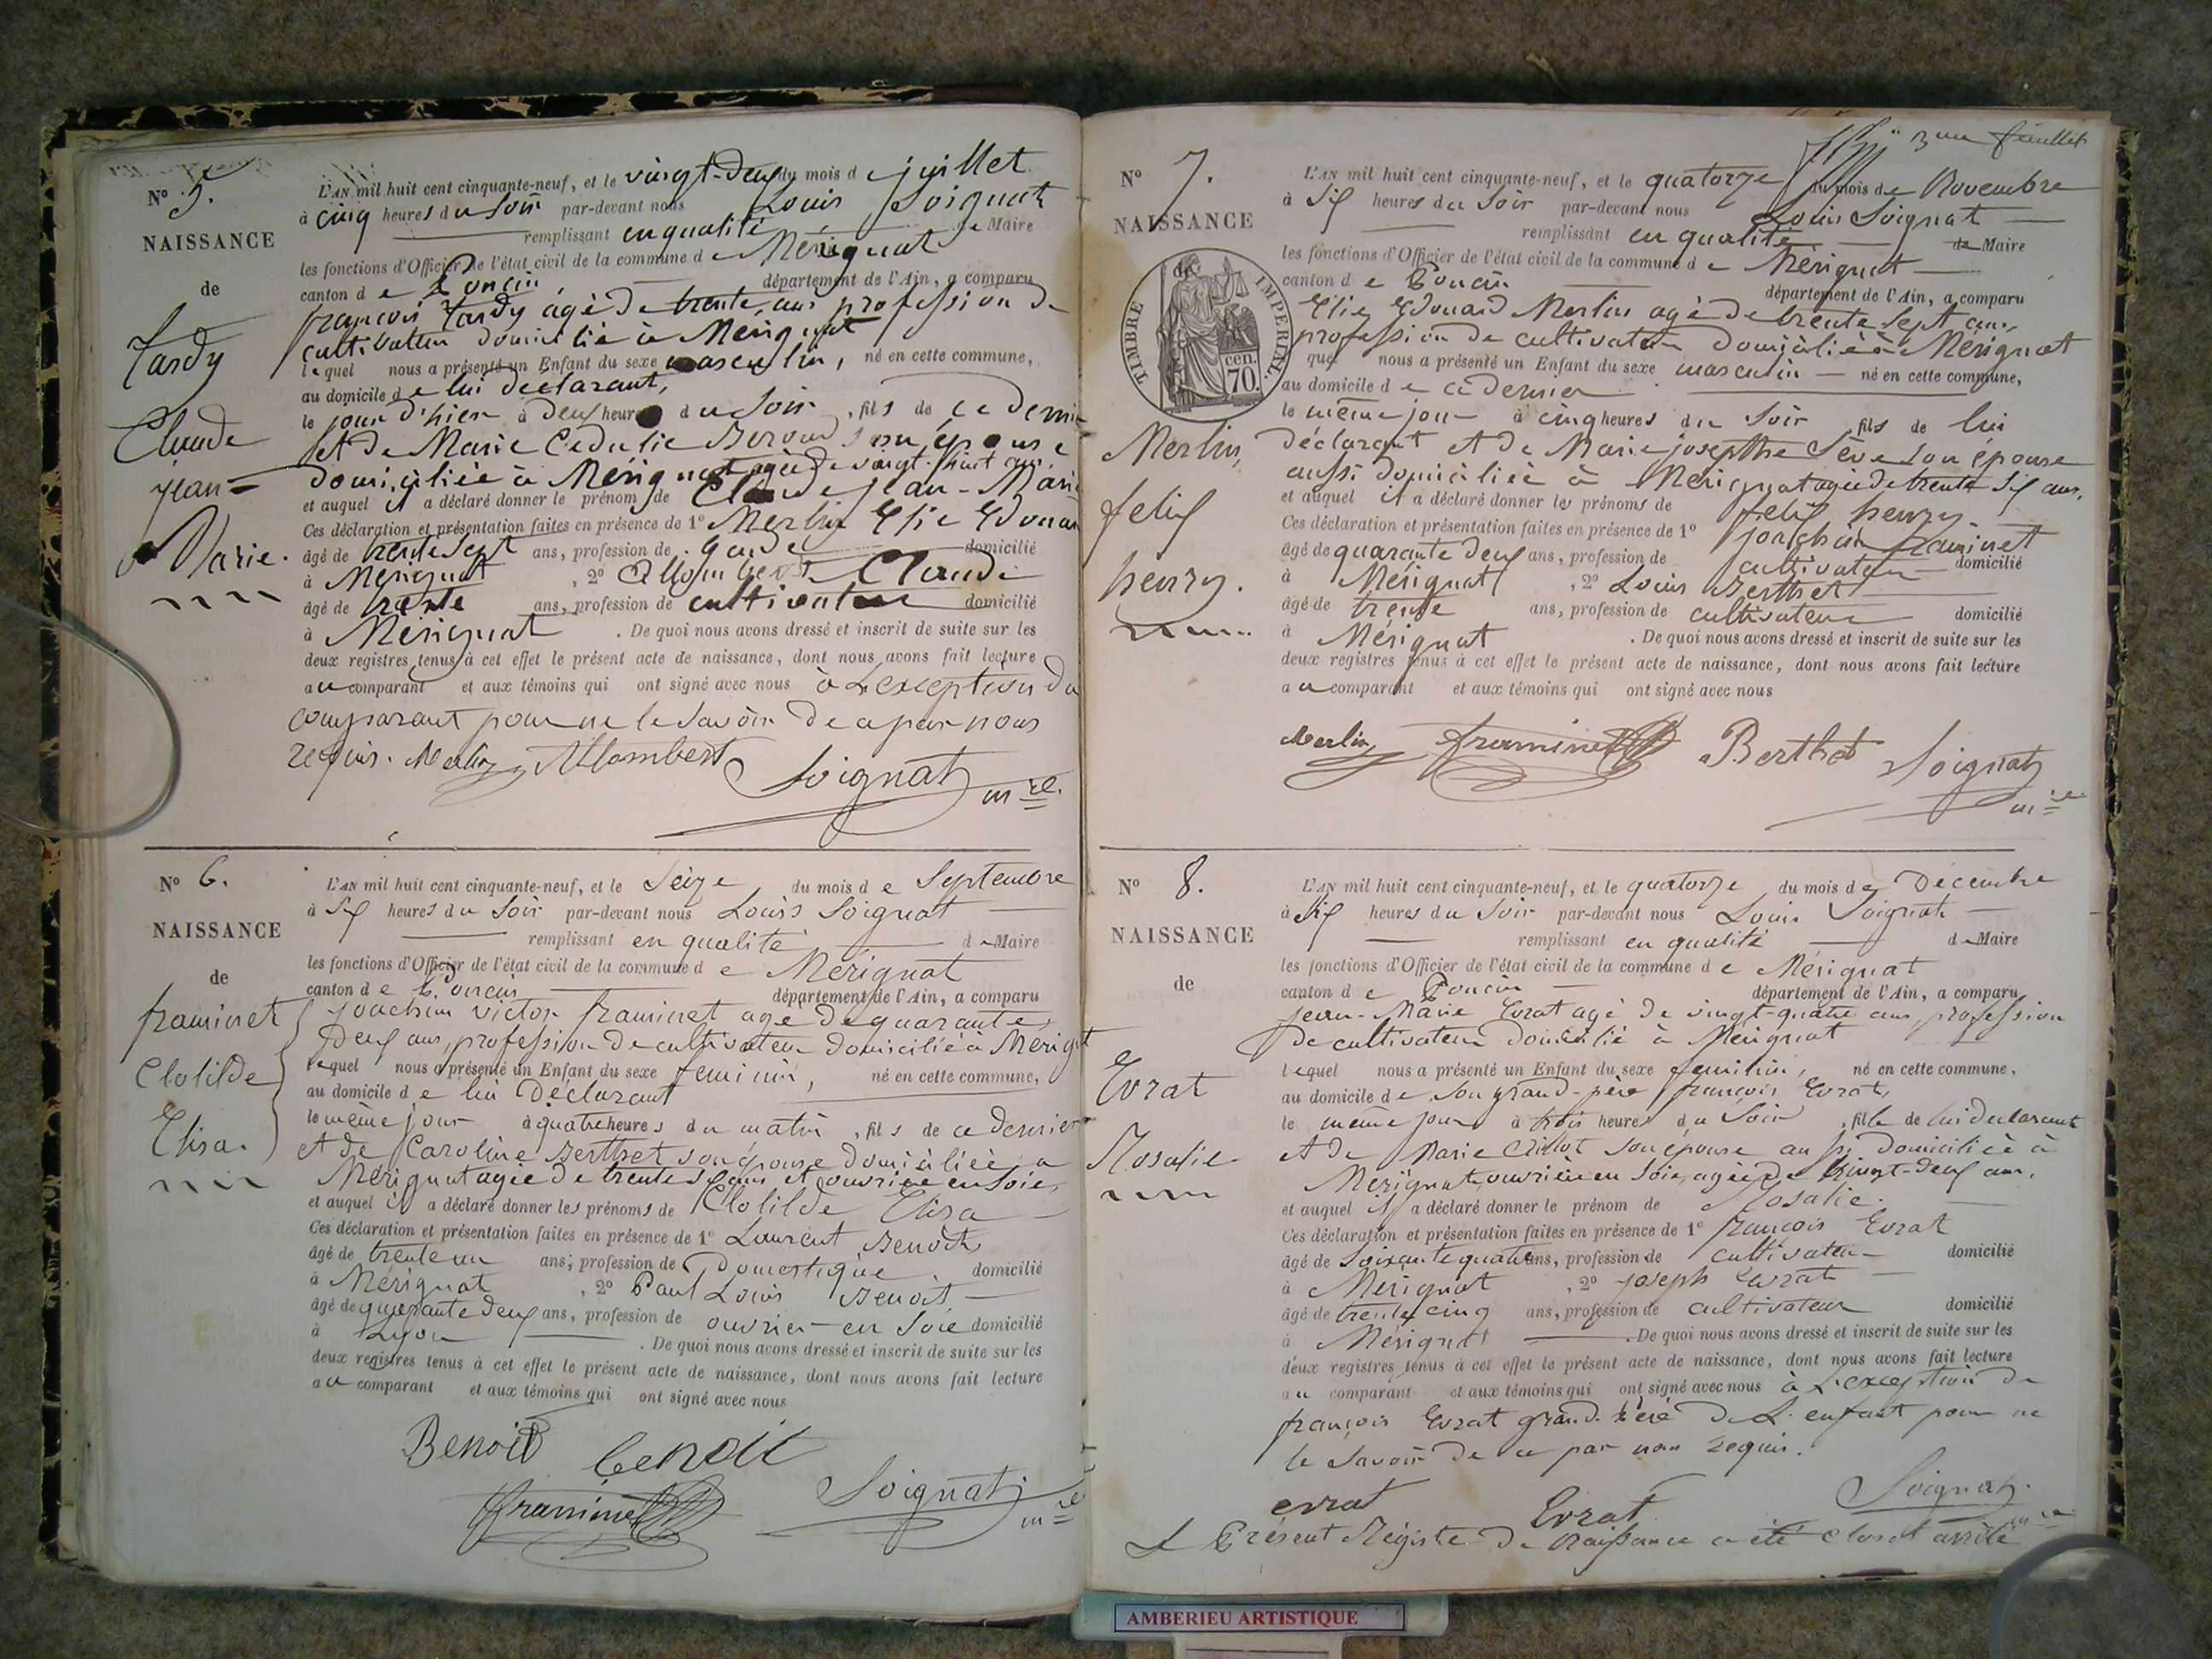 N° 5.
NAISSANCE
de
Tardy
Claude
jean-
Marie.
L'AN mil huit cent cinquante-neuf, et le vingt-deux du mois de juillet
à cinq heures du soir par-devant nous Louis Soignat
remplissant en qualité de Maire
les fonctions d'Officier de l'état civil de la commune de Mérignat
canton de Poncin département de l'Ain, a comparu
françois tardy agé de trente ans profession de
cultivateur domicilié à Mérignat
lequel nous a présenté un Enfant du sexe masculin, né en cette commune,
au domicile de lui déclarant,
le jour d'hier à deux heures du soir, fils de ce dernier
et de Marie Cedulie Beroud son épouse
domiciliée à Mérignat agée de vingt-huit ans
et auquel il a déclaré donner le prénom de Claude jean-Marie
Ces déclaration et présentation faites en présence de 1° Merlin Elie Edouard
âgé de trente sept ans, profession de garde domicilié
à Mérignat, 2° Allombert Claude
âgé de trente ans, profession de cultivateur domicilié
à Mérignat. De quoi nous avons dressé et inscrit de suite sur les
deux registres tenus à cet effet le présent acte de naissance, dont nous avons fait lecture
au comparant et aux témoins qui ont signé avec nous à L'exception du
comparant pour ne le savoir de ce par nous
requis. Merlin Allombert Soignat
m re.
N° 6.
NAISSANCE
de
framinet
Clotilde
Elisa.
L'AN mil huit cent cinquante-neuf, et le Seize du mois de Septembre
à Six heures du Soir par-devant nous Louis Soignat
remplissant en qualité de Maire
les fonctions d'Officier de l'état civil de la commune de Mérignat
canton de Poncin département de l'Ain, a comparu
joachim victor framinet agé de quarante
deux ans, profession de cultivateur domicilié à Mérignat
lequel nous a présenté un Enfant du sexe feminin, né en cette commune,
au domicile de lui Déclarant
le même jour à quatre heures du matin, fils de ce dernier
et de Caroline Berthet son épouse domiciliée a
Mérignat agée de trente six ans et ouvrière en soie,
et auquel il a déclaré donner les prénoms de Clotilde Elisa
Ces déclaration et présentation faites en présence de 1° Laurent Benoit
âgé de trente un ans, profession de Domestique domicilié
à Mérignat, 2° Paul Louis Benoit
âgé de quarante deux ans, profession de ouvrier en Soie domicilié
à Lyon. De quoi nous avons dressé et inscrit de suite sur les
deux registres tenus à cet effet le présent acte de naissance, dont nous avons fait lecture
au comparant et aux témoins qui ont signé avec nous
Benoit benoit
framinet Soignat
m re
3me feuillet
N° 7.
NAISSANCE
TIMBRE IMPERIAL.
cen.
70.
Merlin,
felix
henry.
L'AN mil huit cent cinquante-neuf, et le quatorze du mois de Novembre
à Six heures du Soir par-devant nous Louis Soignat
remplissant en qualité de Maire
les fonctions d'Officier de l'état civil de la commune de Mérignat
canton de Poncin département de l'Ain, a comparu
Elie Edouard Merlin agé de trente sept ans,
profession de cultivateur domicilié à Mérignat
quel nous a présenté un Enfant du sexe masculin né en cette commune,
au domicile de ce dernier
le même jour à cinq heures du Soir fils de lui
déclarant et de Marie josepthe Sève son épouse
aussi domiciliée à Mérignat agée de trente six ans.
et auquel il a déclaré donner les prénoms de felix henry.
Ces déclaration et présentation faites en présence de 1° joachim framinet
âgé de quarante deux ans, profession de cultivateur domicilié
à Mérignat, 2° Louis Berthet
âgé de trente ans, profession de cultivateur domicilié
à Mérignat. De quoi nous avons dressé et inscrit de suite sur les
deux registres tenus à cet effet le présent acte de naissance, dont nous avons fait lecture
au comparant et aux témoins qui ont signé avec nous
Merlin framinet Berthet Soignat
m re
N° 8.
NAISSANCE
de
Evrat
Rosalie
L'AN mil huit cent cinquante-neuf, et le quatorze du mois de Décembre
à Six heures du Soir par-devant nous Louis Soignat
remplissant en qualité de Maire
les fonctions d'Officier de l'état civil de la commune de Mérignat
canton de Poncin département de l'Ain, a comparu
jean-Marie Evrat agé de vingt-quatre ans, profession
de cultivateur domicilié à Mérignat
lequel nous a présenté un Enfant du sexe feminin, né en cette commune,
au domicile de son grand-père françois Evrat,
le même jour à trois heures du Soir, fille de lui declarant
et de Marie son épouse aussi domiciliée à
Mérignat, ouvrière en Soie, agée de vingt-deux ans,
et auquel il a déclaré donner le prénom de Rosalie.
Ces déclaration et présentation faites en présence de 1° françois Evrat
âgé de Soixante quatre ans, profession de cultivateur domicilié
à Mérignat, 2° joseph Evrat
âgé de trente cinq ans, profession de cultivateur domicilié
à Mérignat. De quoi nous avons dressé et inscrit de suite sur les
deux registres tenus à cet effet le présent acte de naissance, dont nous avons fait lecture
au comparant et aux témoins qui ont signé avec nous à L'exception de
françois Evrat grand-père de L'enfant pour ne
le Savoir de ce par nous requis.
evrat Evrat Soignat
m re
Le Présent Régistre de Naissance a été clos et arrêté
AMBERIEU ARTISTIQUE